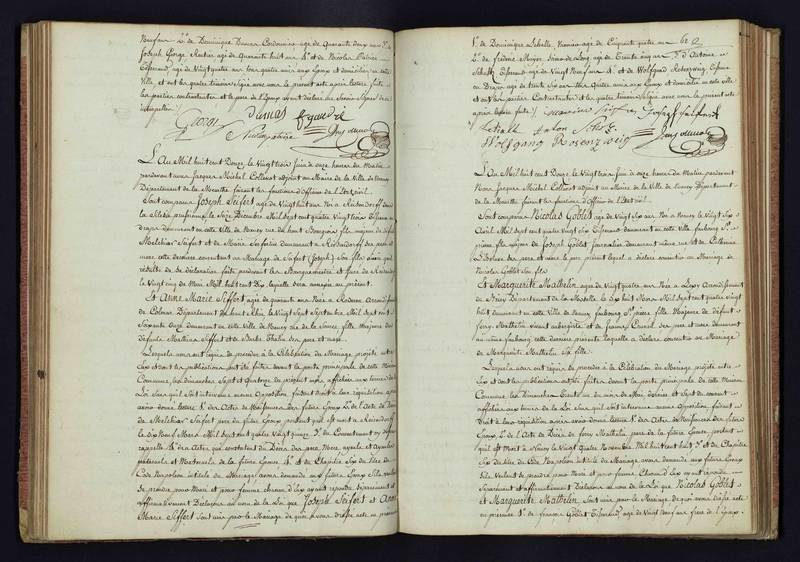 Neufair 2.º de Dominique Dumas Cordonnier agé de Quarante deux ans 3.º
Joseph George Rentier agé de Quarante huit ans 4.º et de Nicolas Patrice
Tisserand, agé de Vingt quatre ans tous quatre amis aux Epoux et domiciliés en cette
Ville et ont les quatre témoins signé avec nous le présent acte après lecture faite
les parties contractantes et le père de l'Epoux ayant déclaré ne savoir signer de ce
interpellés
George Dumas
L'An Mil huit cent Douze le Vingt trois Juin à onze heures du Matin
pardevant nous Jacques Michel Collinet adjoint au Maire de la Ville de Nancy
Département de la Meurthe faisant les fonctions d'officier de l'Etat civil.
Sont comparus Joseph Seifert agé de Vingt huit ans Né à Reisendorff dans
la Silésie prussienne le Seize Décembre Mil sept cent quatre Vingt trois Tisserand
drapier demeurant en cette Ville de Nancy rue du haut Bourgeois fils majeur de défunt
Melchior Seifert et de Marie demeurant à Reisendorff ses père et
mère cette dernière consentant au Mariage de Seifert (Joseph) son fils ainsi qu'il
résulte de sa déclaration faite pardevant les Bourguemestre et Juré de Reisendorff
le Vingt cinq de Mars Mil huit cent Dix, laquelle sera annexée au présent.
Et Anne Marie Siffert agée de quarante ans Née à Roderen Arrondissement
de Colmar Département du haut Rhin, le Vingt Sept Septembre Mil sept cent
Soixante onze demeurant en cette Ville de Nancy rue de la Source, fille majeure de
défunts Mathias Siffert et de Barbe ses père et mère.
Lesquels nous ont requis de procéder à la Célébration du Mariage projeté entre
Eux et dont les publications ont été faites devant la porte principale de cette Maison
Commune, les dimanches Sept et Quatorze du présent mois affichées aux termes de la
Loi Sans qu'il soit intervenu aucune Opposition, faisant droit à leur réquisition après
avoir donné lecture 1.º des Actes de Naissances des futurs Epoux 2.º de l'Acte de Décès
de Melchior Seifert père du futur Epoux portant qu'il est mort à Reisendorff
le dix Neuf Mars Mil huit cent quatre Vingt quinze 3.º du Consentement cy dessus
rappellé 4.º des Actes qui constatent du Décès des père Mère ayeuls et ayeules
paternels et Maternels de la future Epouse 5.º et du Chapitre Six du titre du
Code Napoléon intitulé du Mariage avons demandé aux futurs Epoux S'ils veulent
Se prendre pour Mari et pour femme chacun d'eux ayant répondu Séparément et
affirmativement Déclarons au nom de la Loi que Joseph Seifert et Anne
Marie Siffert Sont unis par le Mariage de quoi avons dressé acte en présence
1.º de Dominique Lekalle, Vannier agé de Cinquante quatre ans
62
2.º de frédéric Mayer, agé de Trente cinq ans 3.º d'Antoine
Schatz Tisserand agé de Vingt Neuf ans 4.º et de Wolfgand Rosenzweig, Tisseur
en Drap agé de trente Six ans Tous Quatre amis aux Epoux et domiciliés en cette ville
et ont les Parties Contractantes et les quatre témoins signé avec nous le présent acte
après lecture faite.
Joseph Seifert
Wolfgang Rosenzweig
L'An Mil huit cent Douze le Vingt trois Juin à onze heures du Matin pardevant
Nous Jacques Michel Collinet adjoint au Maire de la Ville de Nancy Département
de la Meurthe faisant les fonctions d'Officier de l'Etat civil.
Sont comparus Nicolas Goblet agé de Vingt Six ans Né à Nancy le Vingt Six
Avril Mil sept cent quatre Vingt Six Tisserand demeurant en cette Ville faubourg S.t
pierre fils majeur de Joseph Goblet Journalier demeurant même rue et de Catherine
ses père et mère le père présent lequel a déclaré consentir au Mariage de
Nicolas Goblet son fils.
Et Marguerite Mathelin agée de Vingt quatre ans Née à Arrondissement
de Briey Département de la Moselle le dix huit Mars Mil sept cent quatre Vingt
huit demeurant en cette Ville de Nancy faubourg S.t pierre fille Majeure de défunt
Mathelin vivant aubergiste et de ses père et mère demeurant
au même faubourg cette dernière présente laquelle a déclaré consentir au Mariage
de Marguerite Mathelin Sa fille.
Lesquels nous ont requis de procéder à la Célébration du Mariage projeté entre
Eux et dont les publications ont été faites devant la porte principale de cette Maison
Commune, les Dimanches Trente un du mois de Mai dernier et Sept du courant
affichées aux termes de la Loi Sans qu'il Soit intervenu aucune Opposition faisant
Droit à leur réquisition après avoir donné lecture 1.º des Actes de Naissances des futurs
Epoux 2.º de l'Acte de Décès de Mathelin, père de la future Epouse portant
qu'il est Mort à Nancy le Vingt Quatre Novembre Mil huit cent huit 3.º et du Chapitre
Six du titre du Code Napoléon intitulé du Mariage avons demandé aux futurs Epoux
S'ils veulent Se prendre pour Mari et pour femme Chacun d'Eux ayant répondu
Séparément et affirmativement Déclarons au nom de la Loi que Nicolas Goblet
et Marguerite Mathelin Sont unis par le Mariage de quoi avons dressé acte
en présence 1.º de françois Goblet Tisserand agé de Vingt Neuf ans frère de l'Epoux